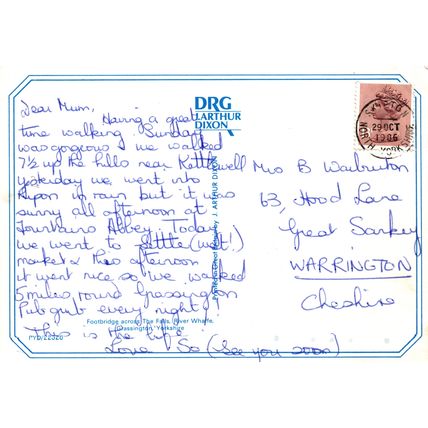 Dear Mum,
Having a great
time walking. Sunday
was gorgeous & we walked
7½ up the hills near Kettlewell
yesterday we went into
Ripon in rain but it was
sunny all afternoon at
Fountains Abbey. Today
we went to Settle (wet!)
market & this afternoon
it went nice so we walked
5 miles round Grassington
Pub grub every night!
This is the life
Love So (See you soon)
DRG
J.ARTHUR
DIXON
J. ARTHUR DIXON
Footbridge across The Falls, River Wharfe,
Grassington, Yorkshire
PYD/22326
29 OCT
1986
NORTH YORKSHIRE
Mrs B Warburton
63, Hood Lane
Great Sankey
WARRINGTON
Cheshire